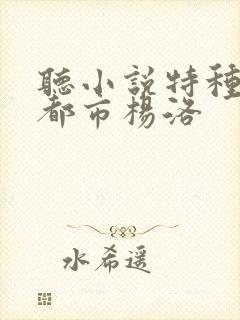 聽小說特種
都市楊洛
水希遥